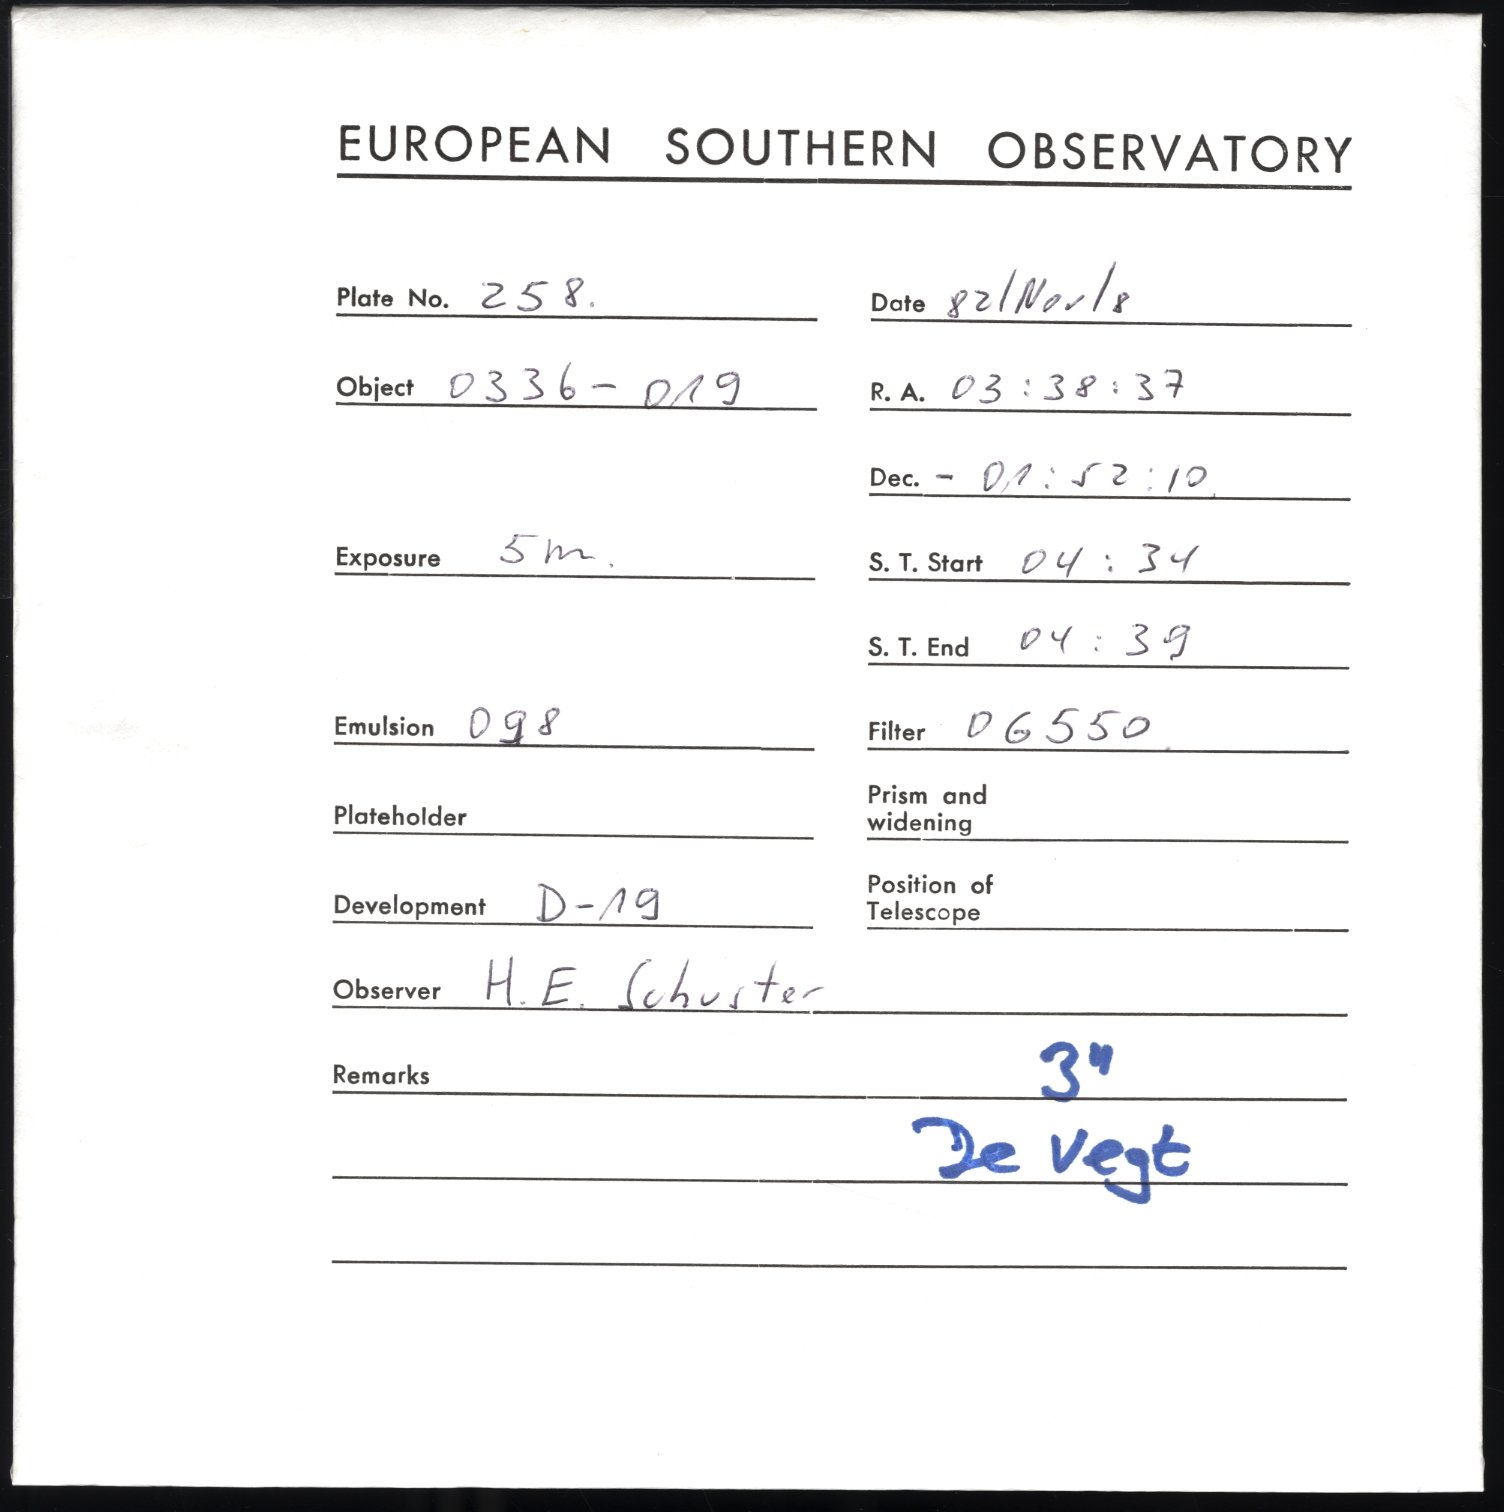 EUROPEAN SOUTHERN OBSERVATORY
Plate No. 258. Date 82/Nov/8
Object 0336-019 R. A. 03:38:37
Dec. - 01:52:10
Exposure 5m. S. T. Start 04:34
S. T. End 04:39
Emulsion 098 Filter OG550
Plateholder Prism and
widening
Development D-19 Position of
Telescope
Observer H. E. Schuster
Remarks 3"
De Vegt